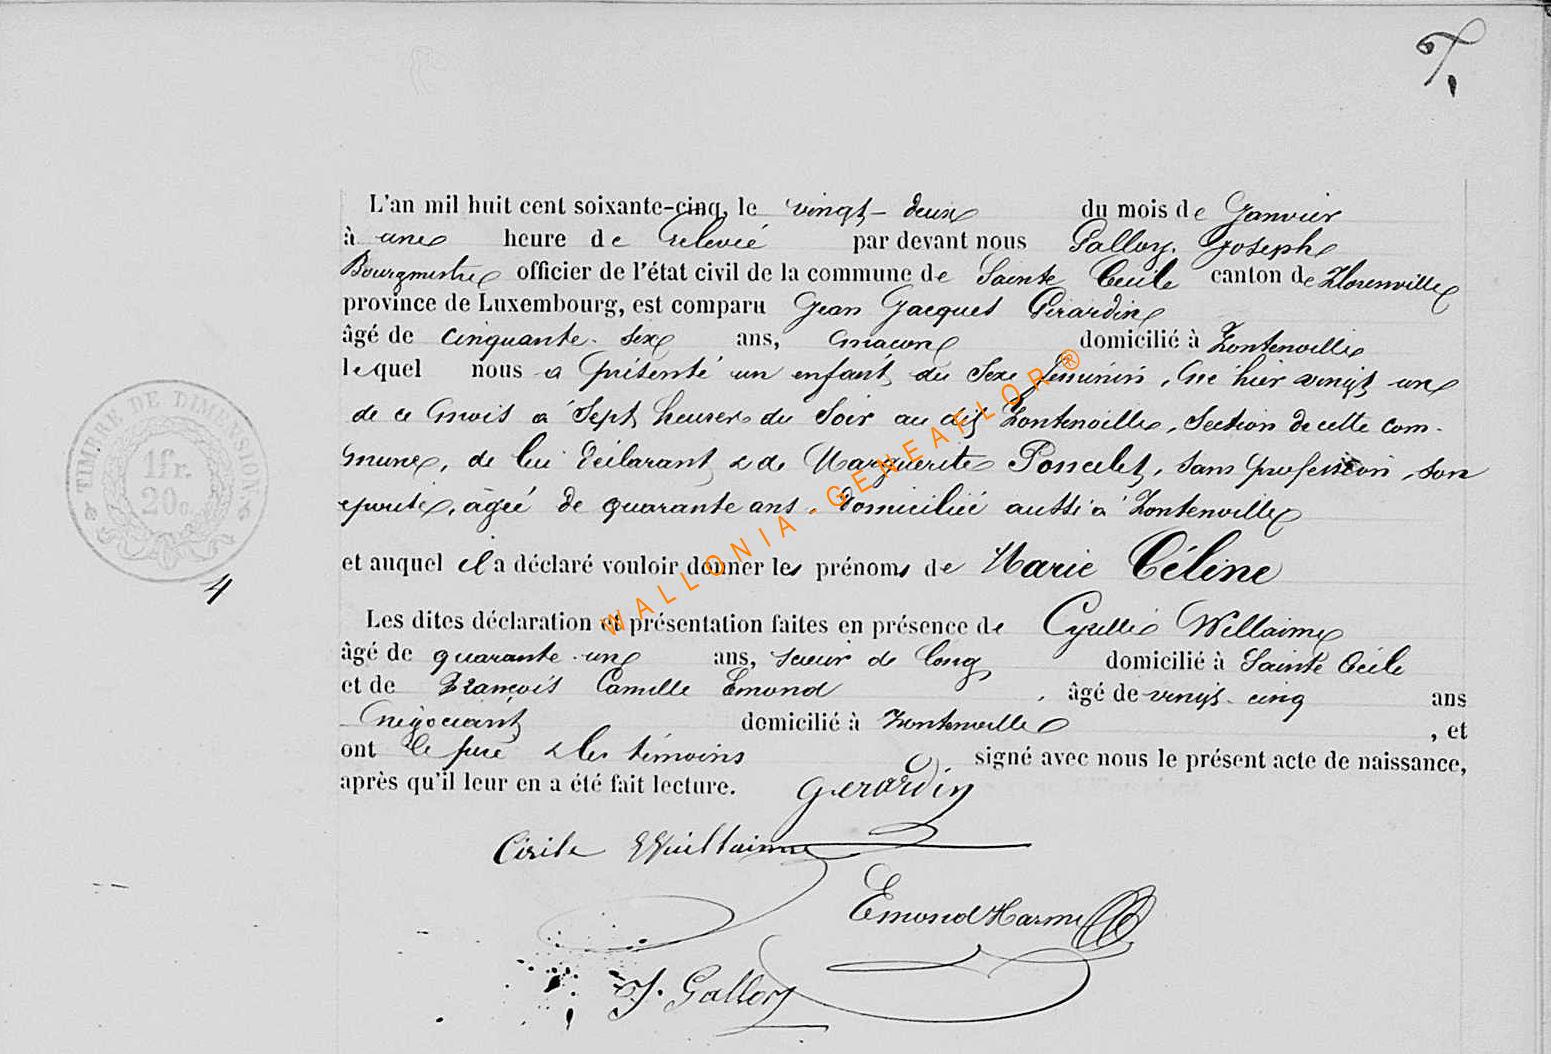 T.
L'an mil huit cent soixante-cinq, le vingt-deux du mois de Janvier
à une heure de relevée par devant nous Galloy Joseph
Bourgmestre officier de l'état civil de la commune de Sainte Cecile canton de Florenville
province de Luxembourg, est comparu Jean Jacques Gérardin
âgé de cinquante-six ans, maçon domicilié à Fontenoille
lequel nous a présenté un enfant du sexe féminin, né hier vingt un
de ce mois à sept heures du soir au dit Fontenoille, section de cette com-
mune, de lui déclarant & de Marguerite Poncelet, sans profession, son
épouse, agée de quarante ans, domiciliée aussi à Fontenoille
et auquel il a déclaré vouloir donner les prénoms de Marie Céline
Les dites déclaration et présentation faites en présence de Cyrille Willaime
âgé de quarante-un ans, scieur de long domicilié à Sainte Cécile
et de François Camille Emond, âgé de vingt-cinq ans
négociant domicilié à Fontenoille, et
ont le père & les témoins signé avec nous le présent acte de naissance,
après qu'il leur en a été fait lecture. gerardin
Cirile Willaime
Emond Harmel
J. Galloy
TIMBRE DE DIMENSION
1fr.
20c.
4
WALLONIA-GENEAFLOR®